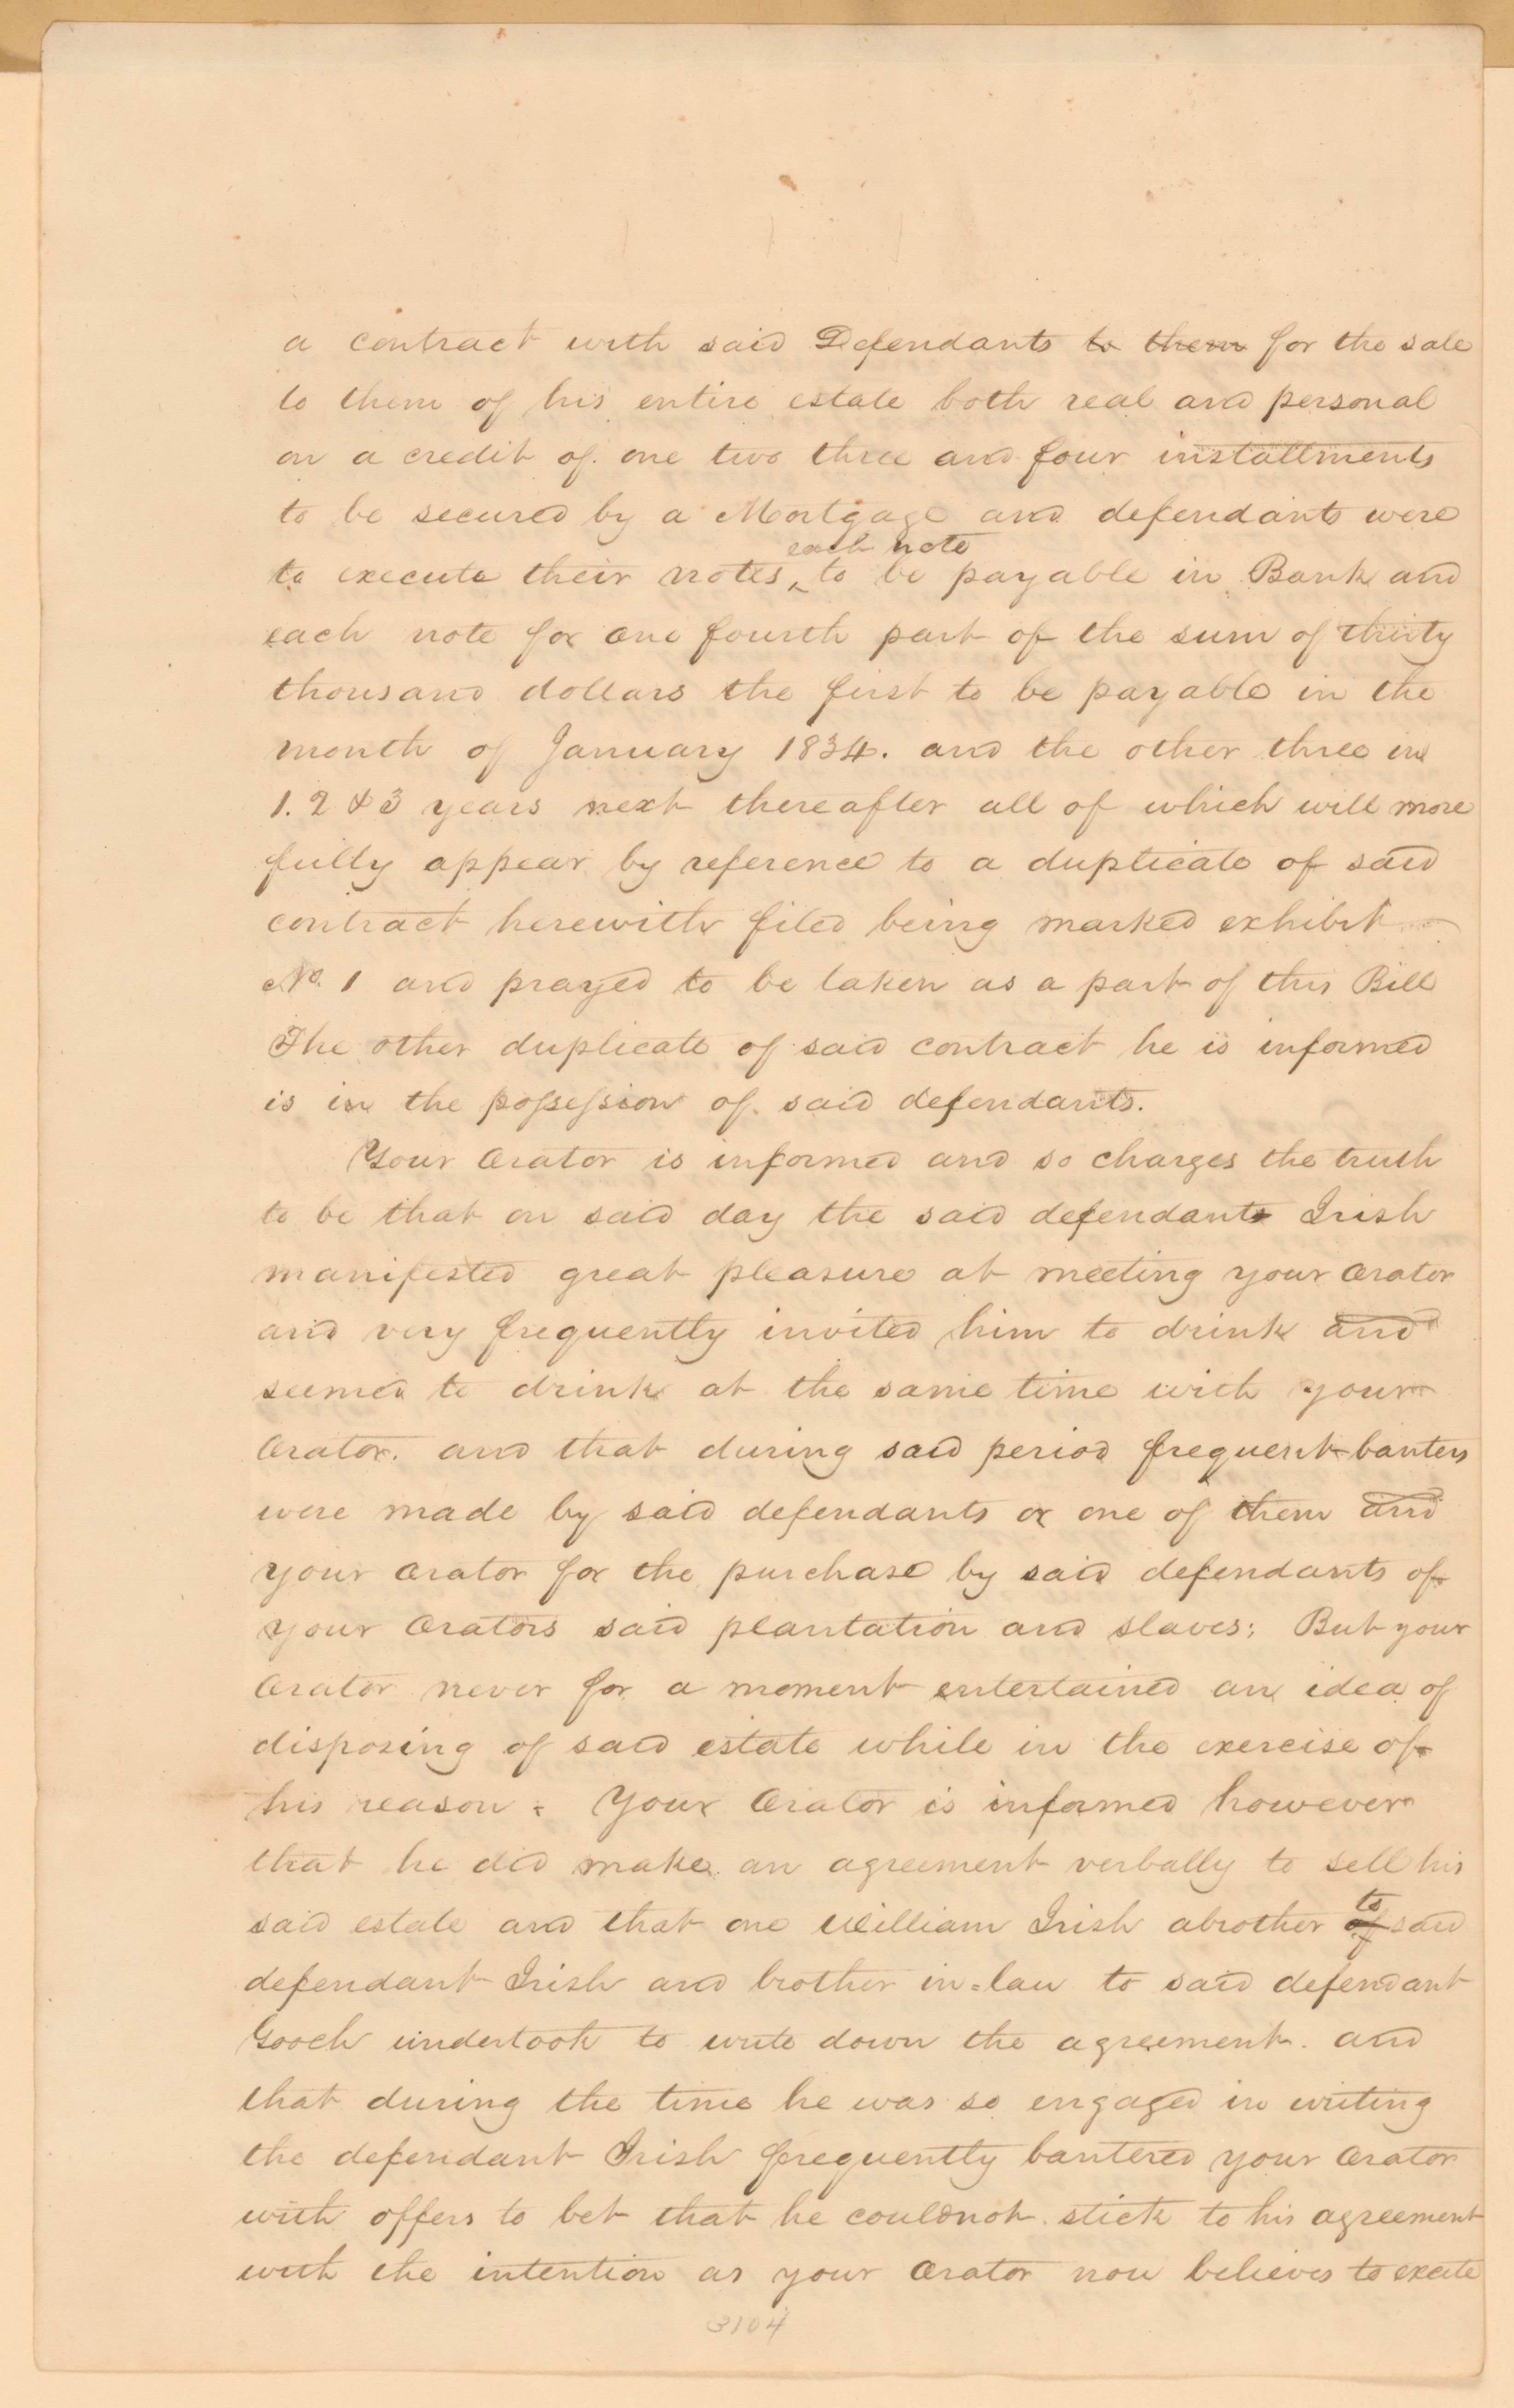 a contract with said Defendants to them for the sale
to them of his entire estate both real and personal
on a credit of one two three and four installments
to be secured by a Mortgage and defendants were
each note
to execute their notes, to be payable in Bank and
each note for one fourth part of the sum of thirty
thousand dollars the first to be payable in the
month of January 1834. and the other three in
1. 2 & 3 years next thereafter all of which will more
fully appear by reference to a duplicate of said
contract herewith filed being marked exhibit
No. 1 and prayed to be taken as a part of this Bill
The other duplicate of said contract he is informed
is in the possession of said defendants.
Your Orator is informed and so charges the truth
to be that on said day the said defendants Irish
manifested great pleasure at meeting your Orator
and very frequently invited him to drink and
seemed to drink at the same time with your
Orator. and that during said period frequent banters
were made by said defendants or one of them and
your Orator for the purchase by said defendants of
your Orators said plantation and slaves; But your
Orator never for a moment entertained an idea of
disposing of said estate while in the exercise of
his reason. Your Orator is informed however
that he did make an agreement verbally to sell his
said estate and that one William Irish a brother of to said
defendant Irish and brother in=law to said defendant
Gooch undertook to write down the agreement. and
that during the time he was so engaged in writing
the defendant Irish frequently bantered your Orator
with offers to bet that he could not stick to his agreement
with the intention as your Orator now believes to excite
3104